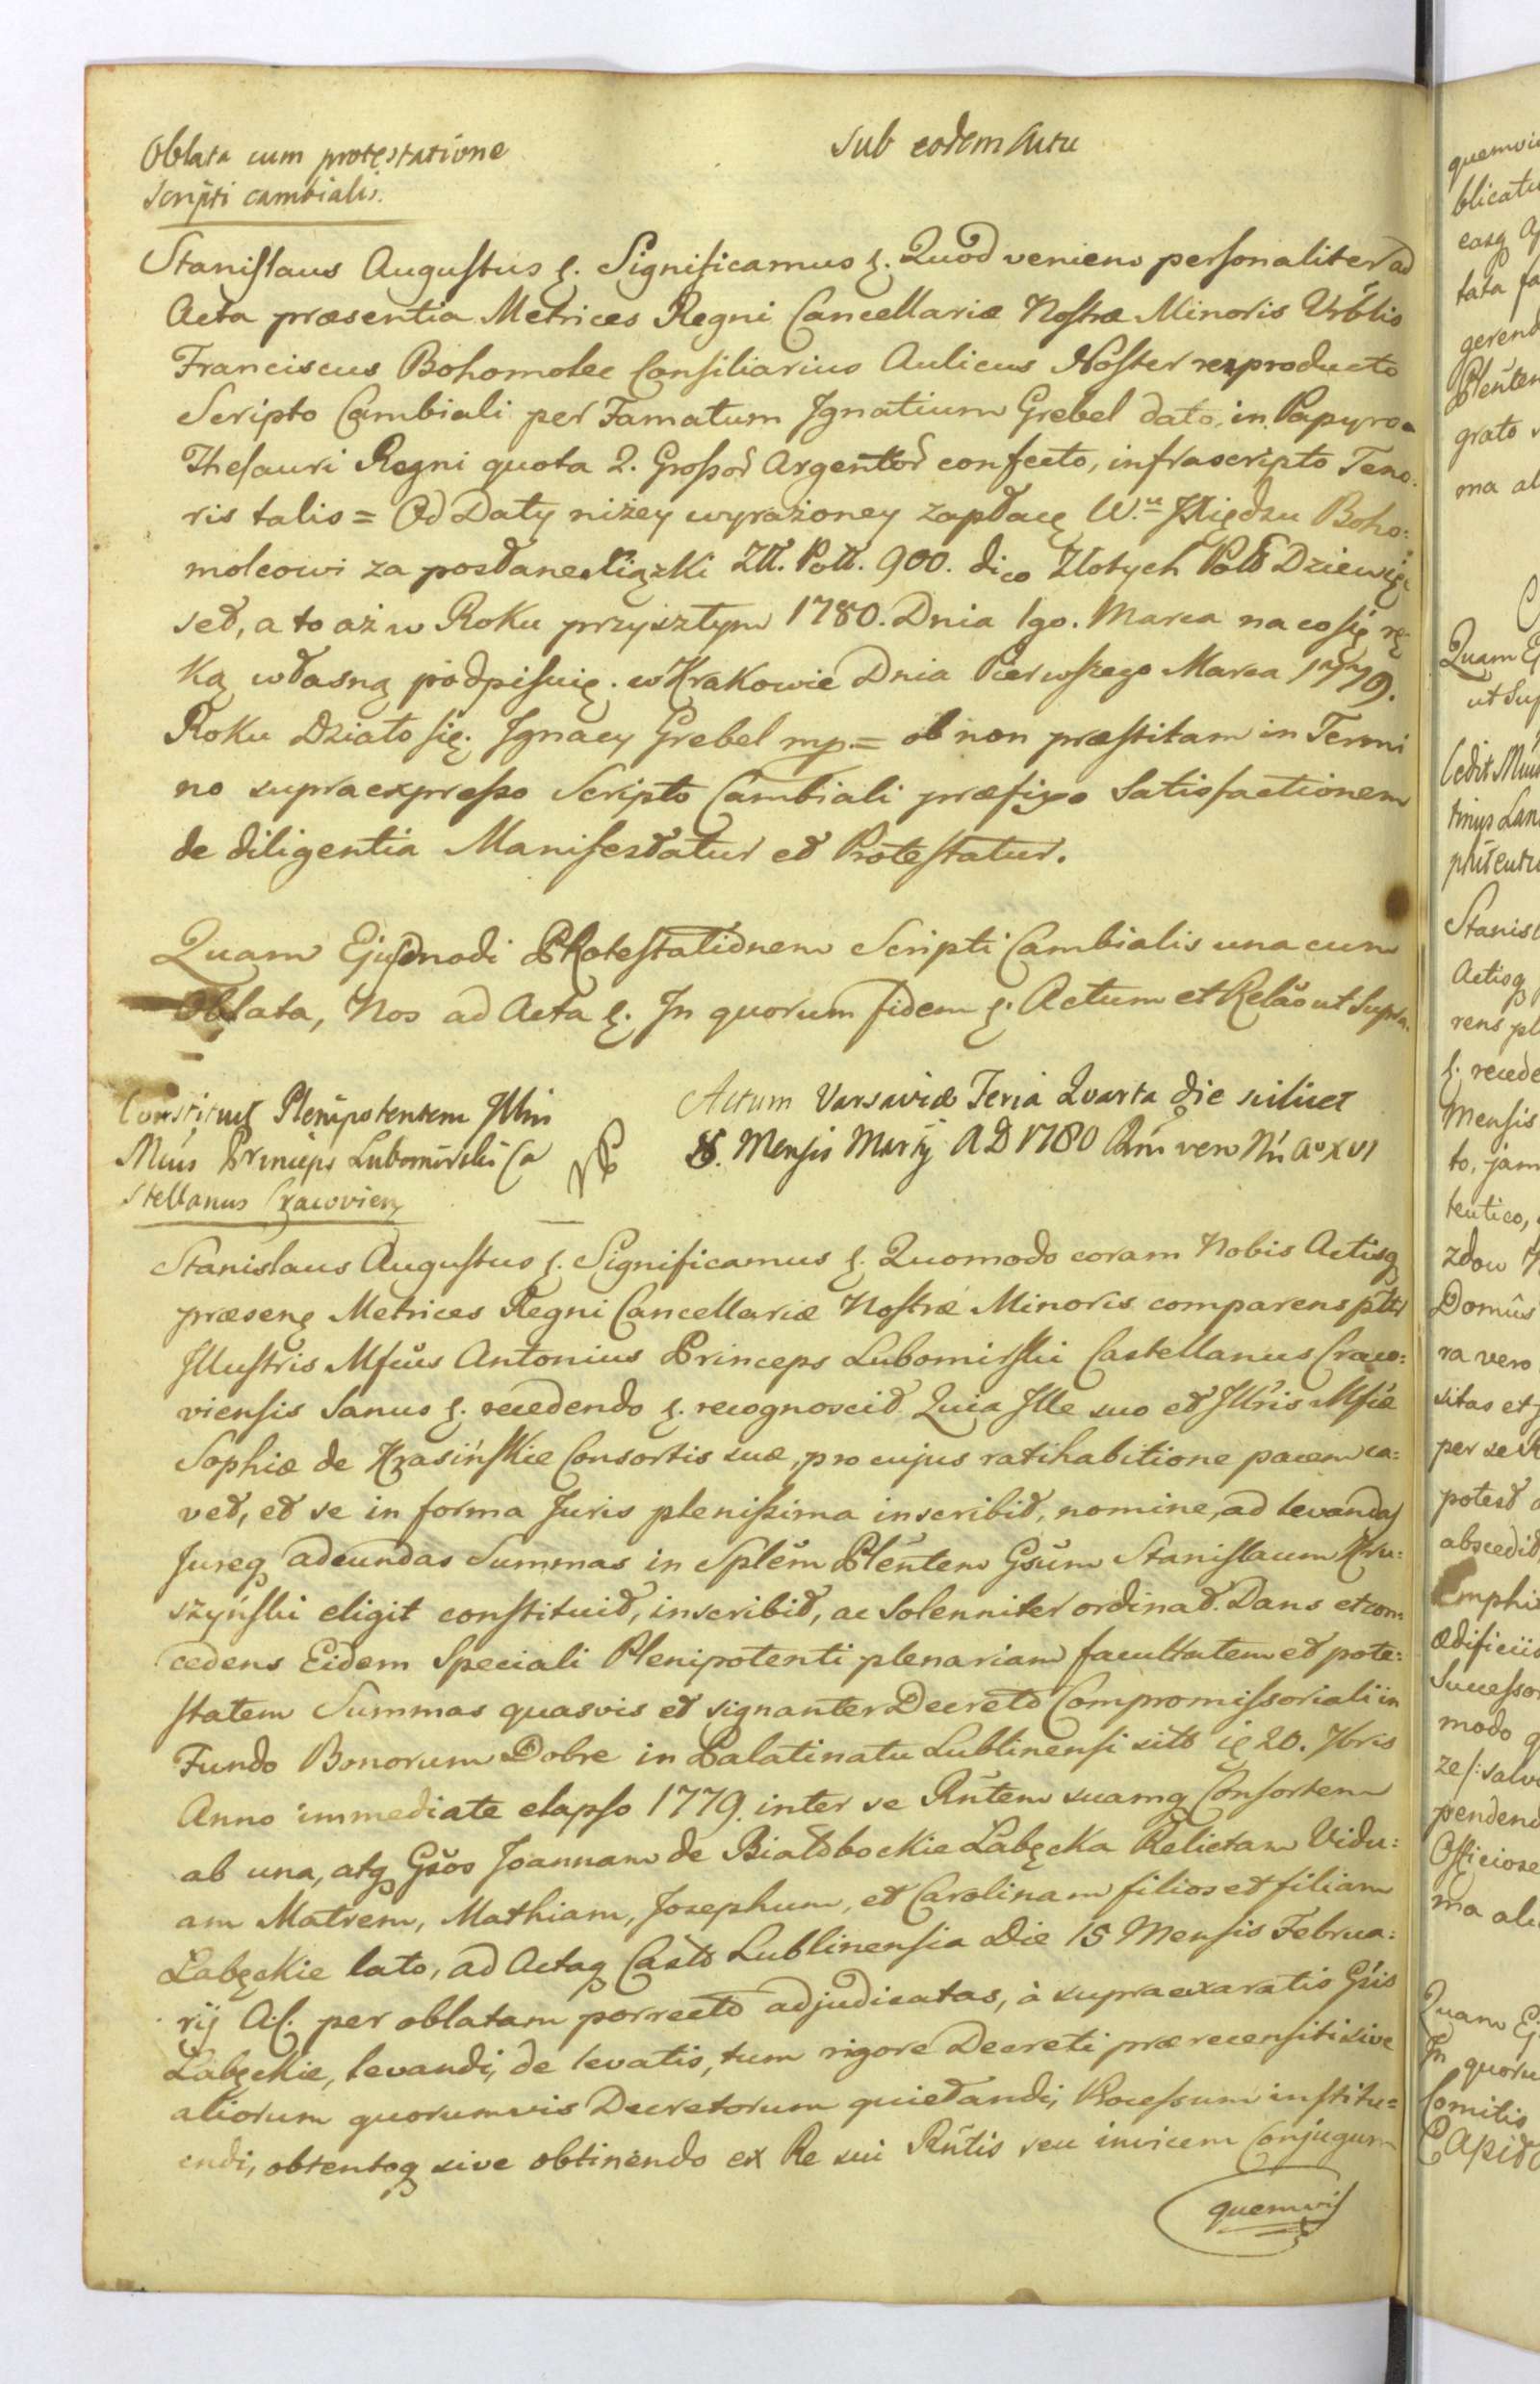 Oblata cum protestatione
Scripti cambialis.
Sub eodem Actu
Stanislaus Augustus &. Significamus &. Quod veniens personaliter ad
Acta præsentia Metrices Regni Cancellariæ Nostræ Minoris Urblis
Franciscus Bohomolec Consiliarius Aulicus Noster reproducto
Scripto Cambiali per Famatum Ignatium Grebel dato, in Papyro
Thesauri Regni quota 2. Grossor Argenteor confecto, infrascripto Teno.
ris talis = Od Daty niżey wyrażoney zapłacę W. Xiędzu Boho:
molcowi za posłane Xiążki Zll. Poll. 900. dico Złotych Pols Dziewię
set, a to aż w Roku przysztym 1780. Dnia 1go. Marca na co się rę
ką własną podpisuię. w Krakowie Dnia Pierwszego Marca 1779.
Roku Działo się. Ignacy Grebel mp = ob non præstitam in Termi
no supraexpresso Scripto Cambiali præfixo Satisfactionem
de diligentia Manifestatur et Protestatur.
Quam Ejusmodi Protestationem Scripti Cambialis una cum
Oblata, Nos ad Acta &. In quorum fidem &. Actum et Relão ut Supra.
Constituit Plenipotentem Illm
Mfus Princeps Lubomirski Ca
stellanus Cracovien
Actum Varsaviæ Feria Quarta die scilicet
8. Mensis Martij AD 1780 Rni vero Nri Ao XVI
Stanislaus Augustus &. Significamus &. Quomodo coram Nobis Actisq
præsen Metrices Regni Cancellariæ Nostræ Minoris comparens pltr
Illustris Mfcus Antonius Princeps Lubomirski Castellanus Craco:
viensis Sanus &. recedendo &. recognoscit Quia Ille suo et Illris Mfcæ
Sophiæ de Krasińskie Consortis suæ, pro cujus ratihabitione pacem ca:
vet, et se in forma Juris plenissima inscribit, nomine, ad levandas
Jureq adeundas Summas in Splem Plentem Gsum Stanislaum Kru:
szyński eligit constituit, inscribit, ac Solenniter ordinat. Dans et con:
cedens Eidem Speciali Plenipotenti plenariam facultatem et pote:
statem Summas quasvis et signanter Decreto Compromissoriali in
Fundo Bonorum Dobre in Palatinatu Lublinensi sito 20. 7bris
Anno immediate elapso 1779. inter se Rntem suamq Consortem
ab una, atq Gsos Joannam de Białobockie Łabęcka Relictam Vidu:
am Matrem, Mathiam, Josephum, et Carolinam filios et filiam
Łabęckie lato, ad Actaq Castr Lublinensia Die 15 Mensis Februa:
rij A.C. per oblatam porrecto adjudicatas, à supraexaratis Gsis
Łabęckie, levandi, de levatis, tum rigore Decreti prærecensiti sive
aliorum quorumvis Decretorum quietandi, Processum institu=
endi, obtentoq sive obtinendo ex Re sui Rntis seu invicem Conjugum
quemvis